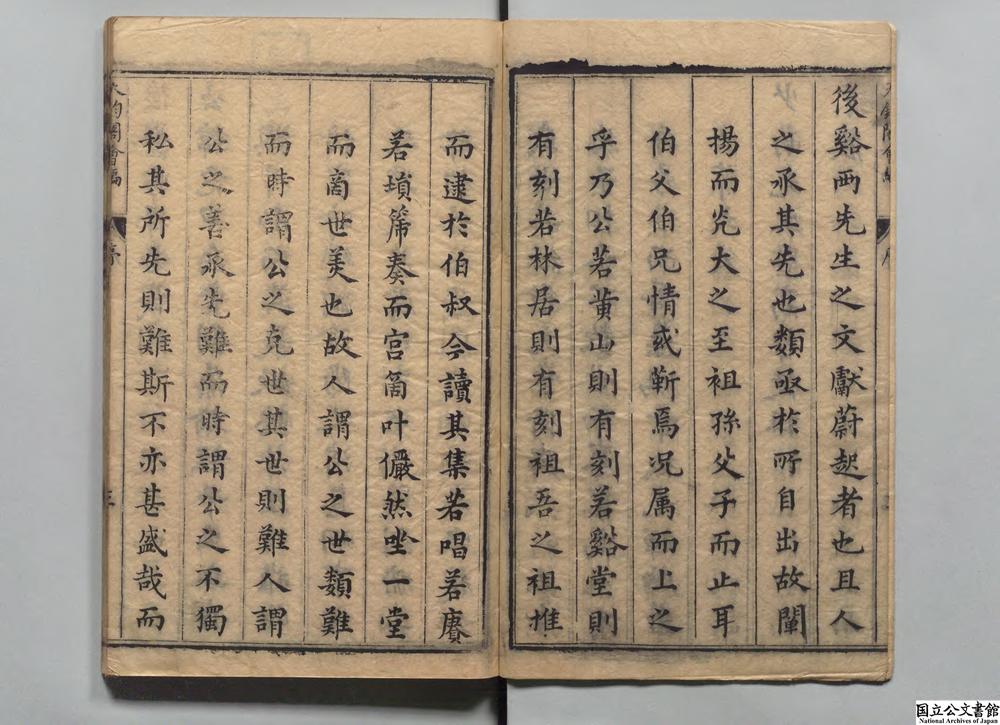 後谿两先生之文獻蔚起者也且人
之承其先也類亟於所自出故闡
揚而光大之至祖孫父子而止耳
伯父伯兄情或靳焉况属而上之
乎乃公若黄山則有刻若谿堂則
有刻若林居則有刻祖吾之祖推
而逮於伯叔今讀其集若唱若賡
若塤箎奏而宫啇叶儼然㘴一堂
而啇世美也故人謂公之世類難
而時謂公之克世其世則難人謂
公之善承先難而時謂公之不獨
私其所先則難斯不亦甚盛哉而
序
三
国立公文書館
National Archives of Japan